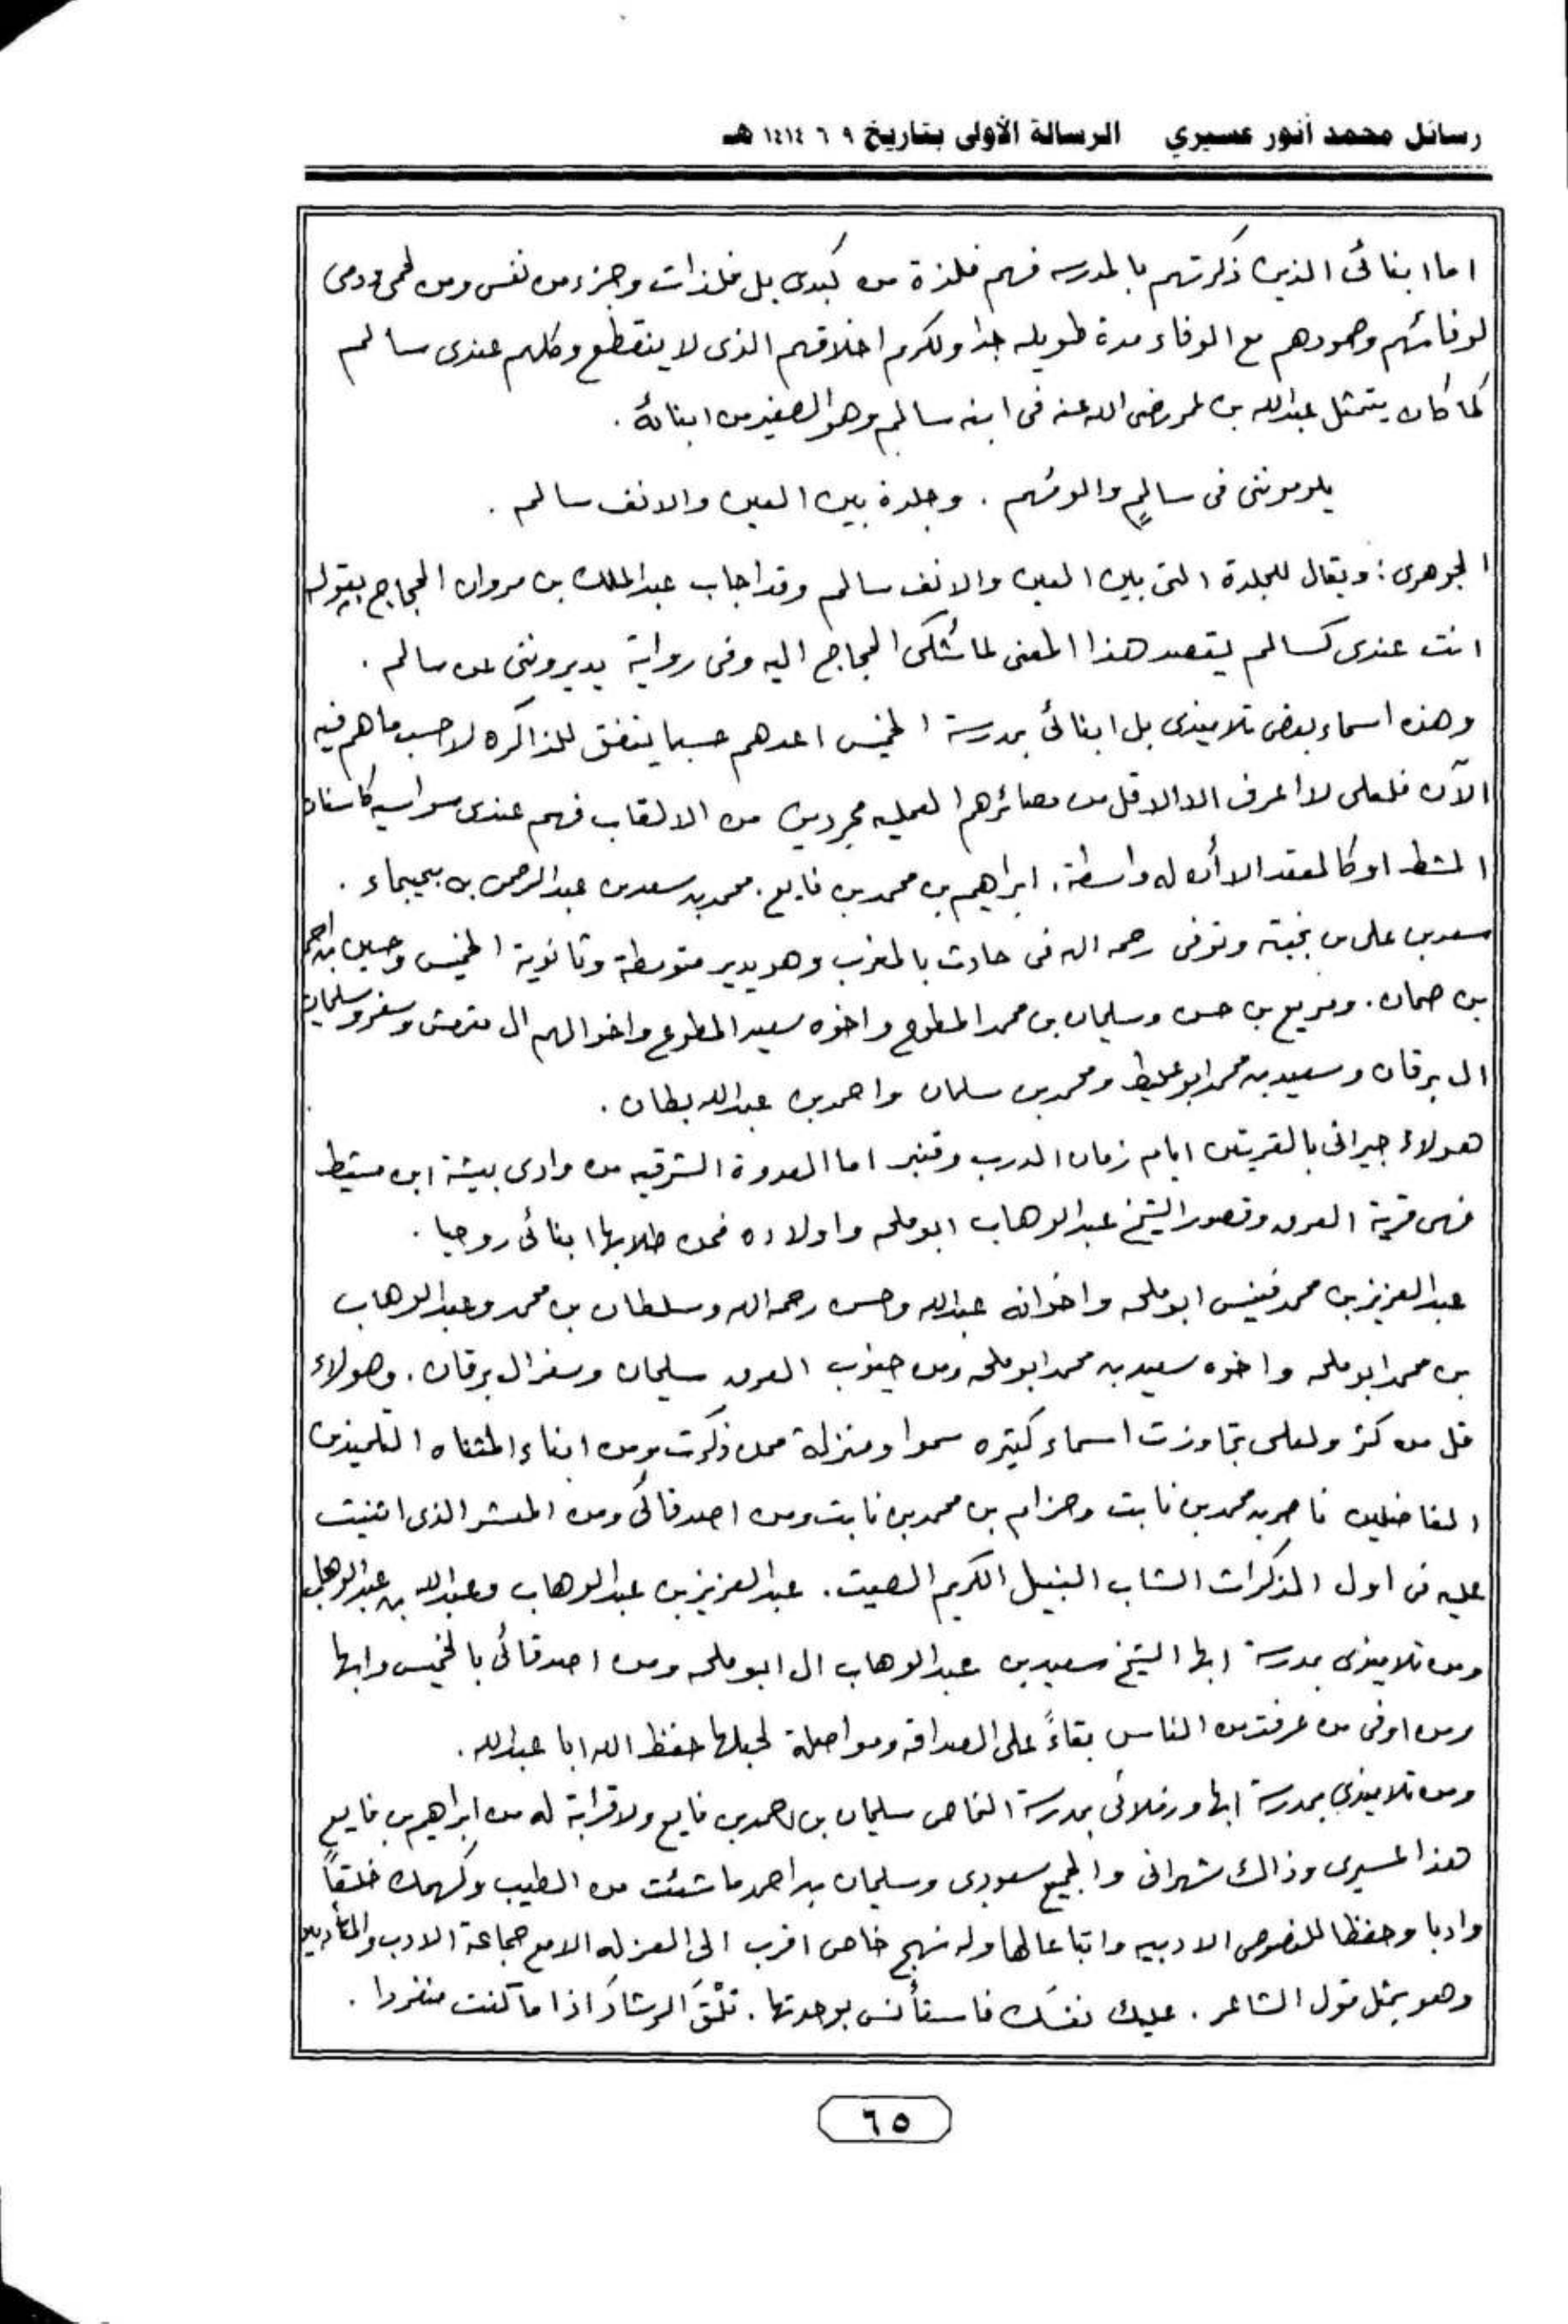 رسائل محمد أنور عسيري الرسالة الأولى بتاريخ ٩ ٦ ١٤١٤ هـ
اما ابنائى الذين ذكرتهم بالمدرسه فهم فلذة من كبدى بل فلذات وجزء من نفسى ومن لحمى ودمى
لوفائهم وصمودهم مع الوفاء مدة طويله جدا ولكرم اخلاقهم الذى لا ينقطع وكلهم عندى سالم
كما كان يتمثل عبدالله بن عمر رضى الله عنه فى ابنه سالم وهو الصغير من ابنائه .
يلوموننى فى سالمٍ والومهم . وجلدة بين العين والانف سالم .
الجوهرى : ويقال للجلدة التى بين العين والانف سالم وقد اجاب عبدالملك بن مروان الحجاج بقوله
انت عندى كسالم يقصد هذا المعنى لما شكى الحجاج اليه وفى رواية يديروننى عن سالم .
وهذه اسماء بعض تلاميذى بل ابنائى بمدرسة الخميس اعدهم حسبما يتفق للذاكره لا حسب ما هم فيه
الآن فلعلى لا اعرف الا الاقل من مصائرهم العمليه مجردين من الالقاب فهم عندى سواسيه كاسنان
المشط او كالعقد الا أن له واسطة . ابراهيم بن محمد بن فايع . محمد بن سعد بن عبدالرحمن بن بجيماء .
سعد بن على بن نجية وتوفى رحمه الله فى حادث بالمغرب وهو يدير متوسطة وثانوية الخميس وحسين بن احمد
بن حمان . ومريع بن حسن وسليمان بن محمد المطوع واخوه سعيد المطوع واخوالهم ال وسفر وسليمان
ال برقان وسعيد بن محمد ابو غليظ ومحمد بن سلمان واحمد بن عبدالله بطان .
هولاء جيرانى بالقريتين ايام زمان الدرب وقنبر اما العدوة الشرقيه من وادى بيشة ابن مشيط
فهى قرية العرق وقصور الشيخ عبدالوهاب ابو ملحه واولاده فمن طلابها ابنائى روحيا .
عبدالعزيز بن محمد فنيس ابو ملحه واخوانه عبدالله وحسن رحمه الله وسلطان بن محمد وعبدالوهاب
بن محمد ابو ملحه واخوه سعيد بن محمد ابو ملحه ومن جنوب العرق سليمان وسفر ال برقان . وهولاء
قل من كثر ولعلى تجاوزت اسماء كثيره سموا ومنزلة ممن ذكرت ومن ابناء المثناه التلميذين
الفاضلين ناصر بن محمد بن نابت وحزام بن محمد بن نابت ومن اصدقائى ومن المعشر الذى اثنيت
عليه فى اول المذكرات الشاب النبيل الكريم الصيت . عبدالعزيز بن عبدالوهاب وعبدالله بن عبدالوهاب
ومن تلاميذى بمدرسة ابها الشيخ سعيد بن عبدالوهاب ال ابو ملحه ومن اصدقائى بالخميس وابها
ومن اوفى من عرفت من الناس بقاءً على الصداقه ومواصلة لحبلها حفظ الله ابا عبدالله .
ومن تلاميذى بمدرسة ابها وزملائى بمدرسة النماص سليمان بن احمد بن فايع ولا قرابة له من ابراهيم بن فايع
هذا عسيرى وذاك شهرانى والجميع سعودى وسليمان بن احمد ما شئت من الطيب وكهمك خلقاً
وادبا وحفظا للنصوص الادبيه واتباعا لها وله نهج خاص اقرب الى العزله الا مع جماعة الادب والمتأدبين
وهو يمثل قول الشاعر . عليك نفسَك فاستأنس بوحدتها . تلْقَ الرشادَ اذا ما كنت منفردا .
٦٥